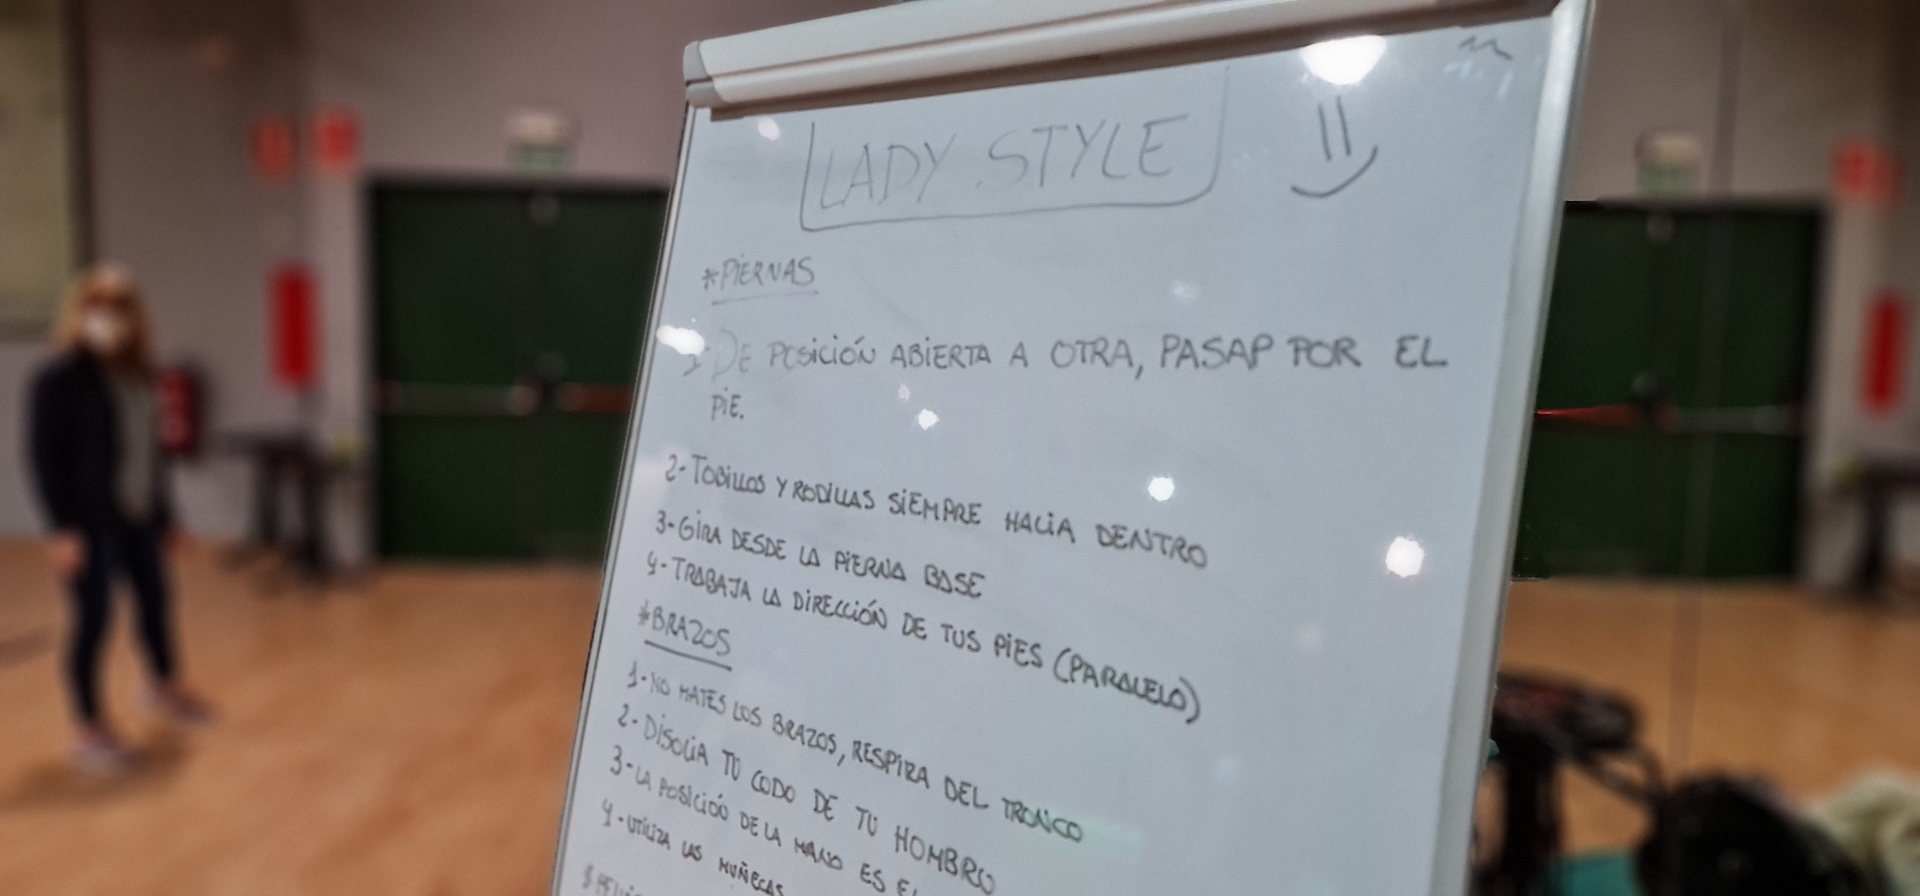 LADY STYLE
*PIERNAS
1- DE POSICIÓN ABIERTA A OTRA, PASAR POR EL
PIE.
2- TOBILLOS Y RODILLAS SIEMPRE HACIA DENTRO
3- GIRA DESDE LA PIERNA BASE
4- TRABAJA LA DIRECCIÓN DE TUS PIES (PARALELO)
*BRAZOS
1- NO MATES LOS BRAZOS, RESPIRA DEL TRONCO
2- DISOCIA TU CODO DE TU HOMBRO
3- LA POSICIÓN DE LA MANO ES EL
4- UTILIZA LAS MUÑECAS